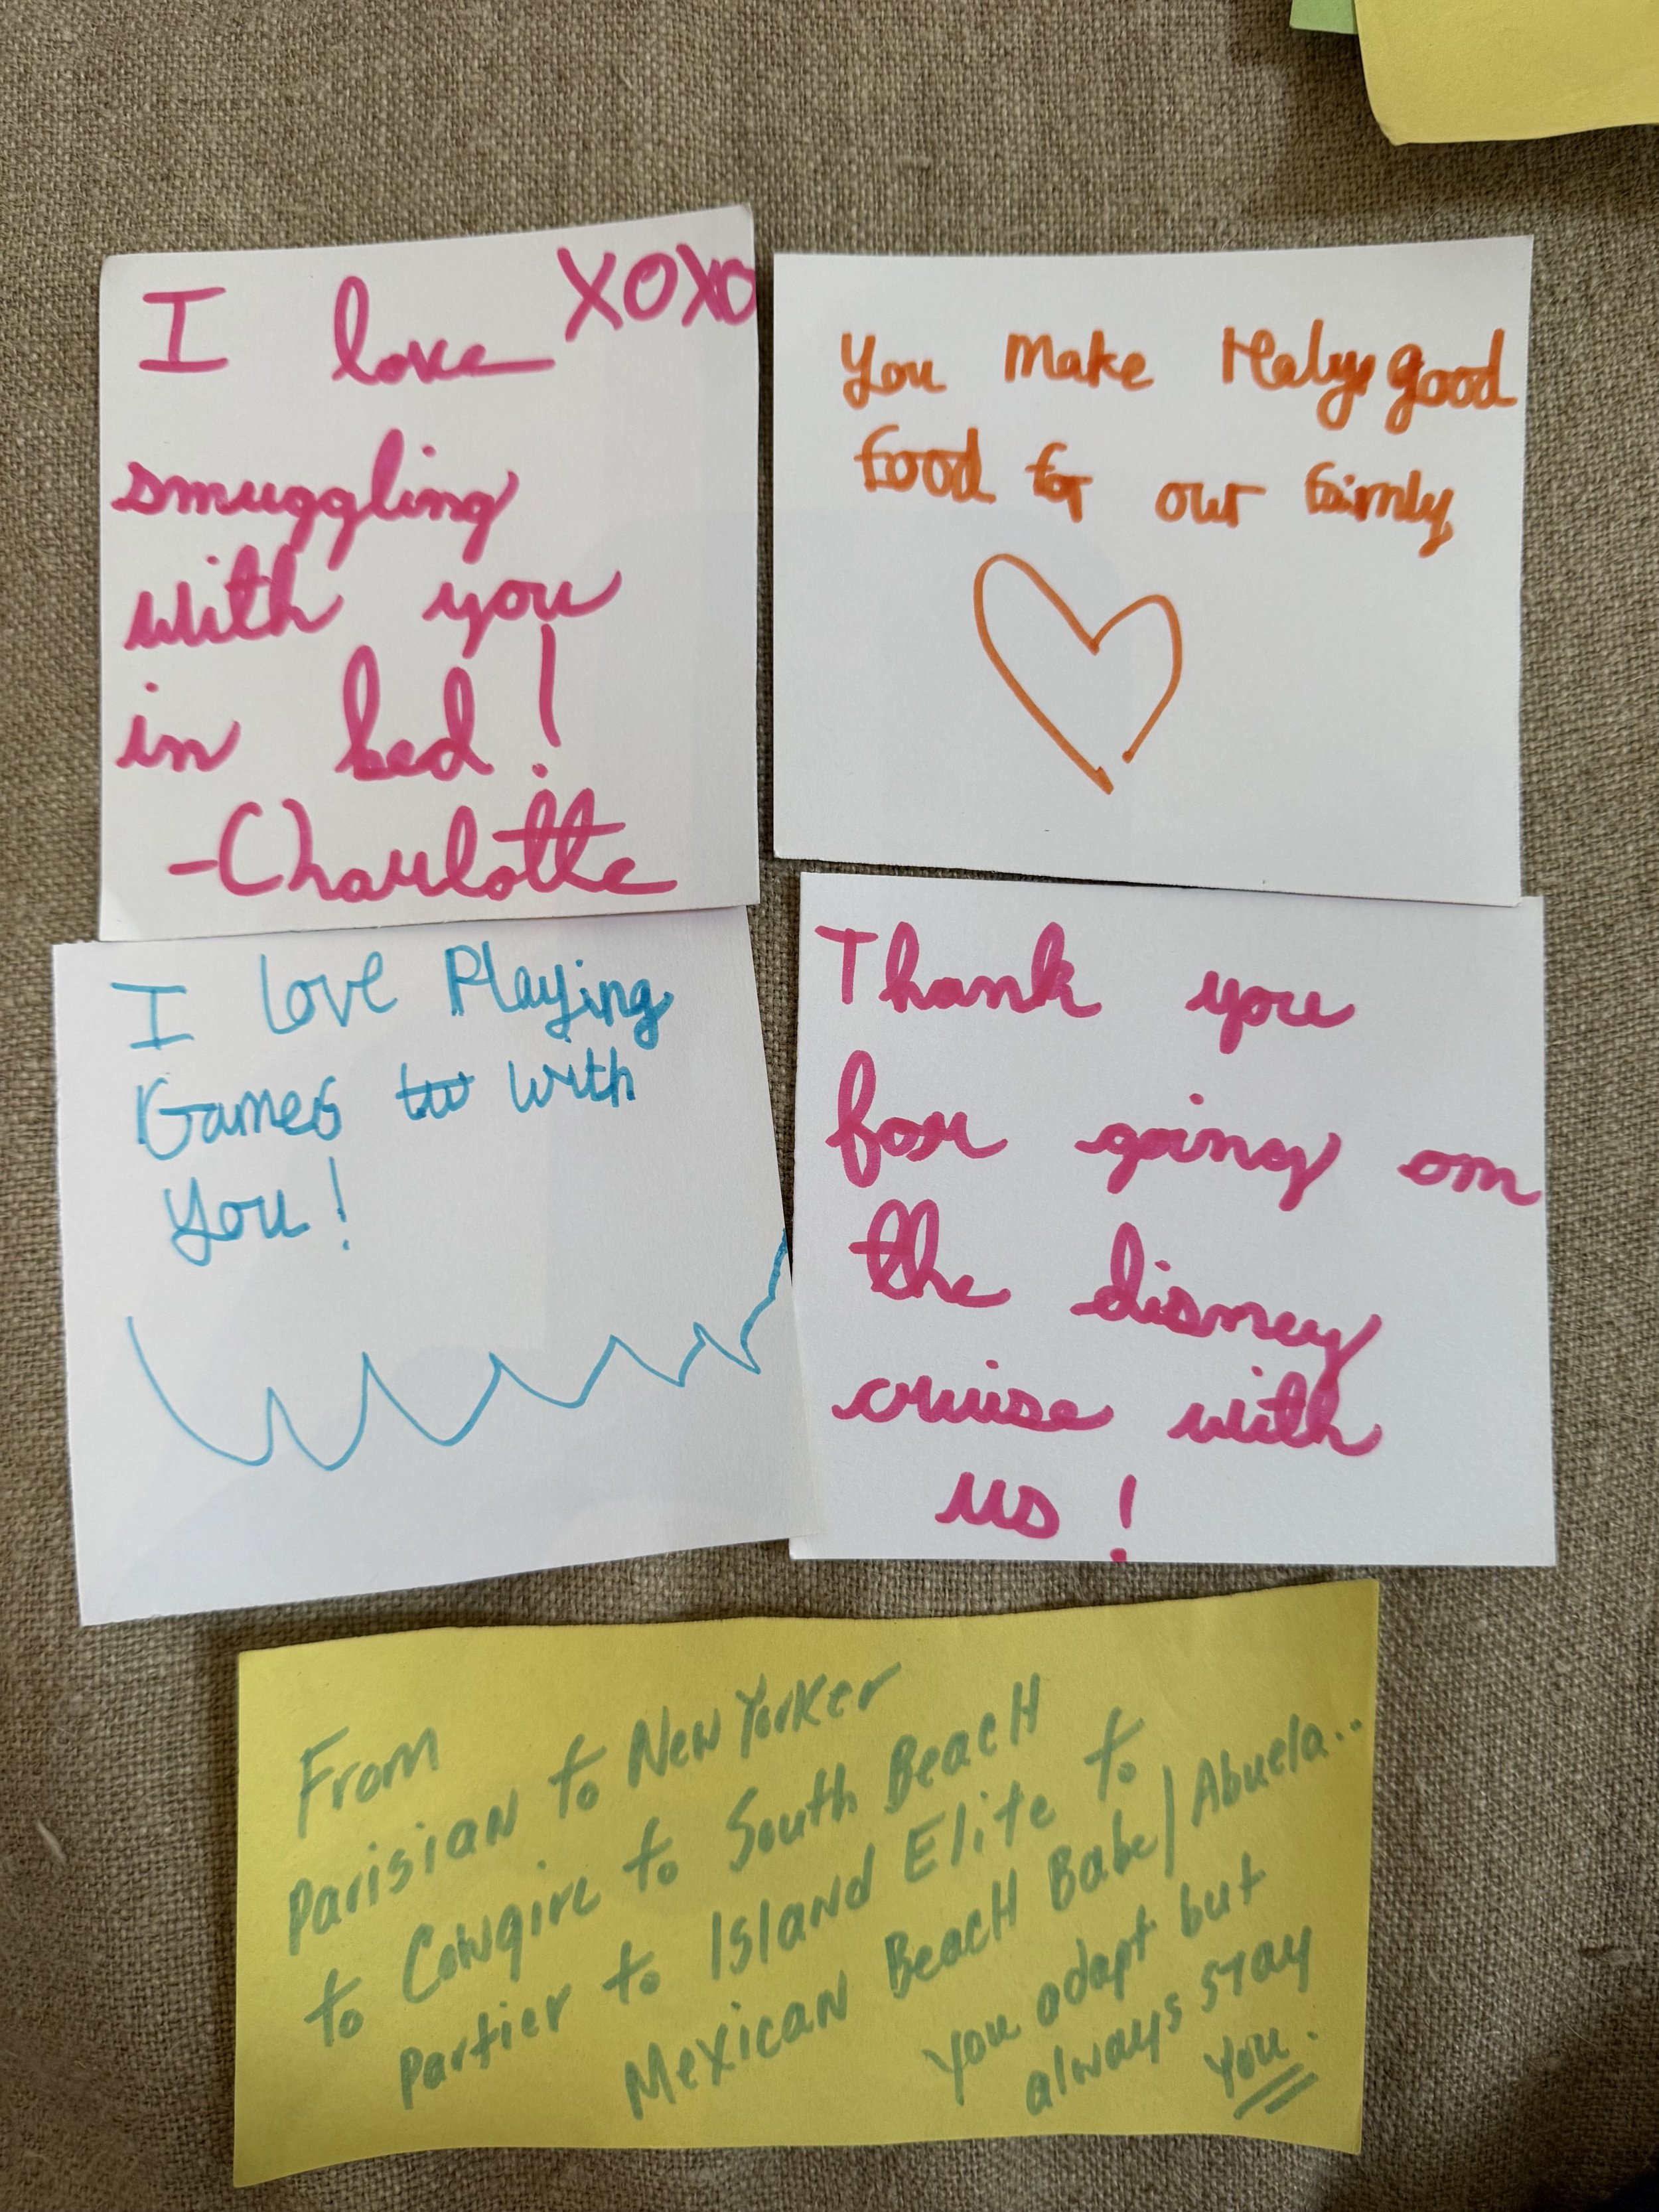 I love XOXO
smuggling
with you
in bed!
-Charlotte
You make good
food for our
I love Playing
Games with
You!
Thank you
for going on
the disney
cruise with
us!
From
Parisian to New Yorker
to Cowgirl to South Beach
Partier to Island Elite to
Mexican Beach Babe/Abuela...
You adapt but
always stay
You.